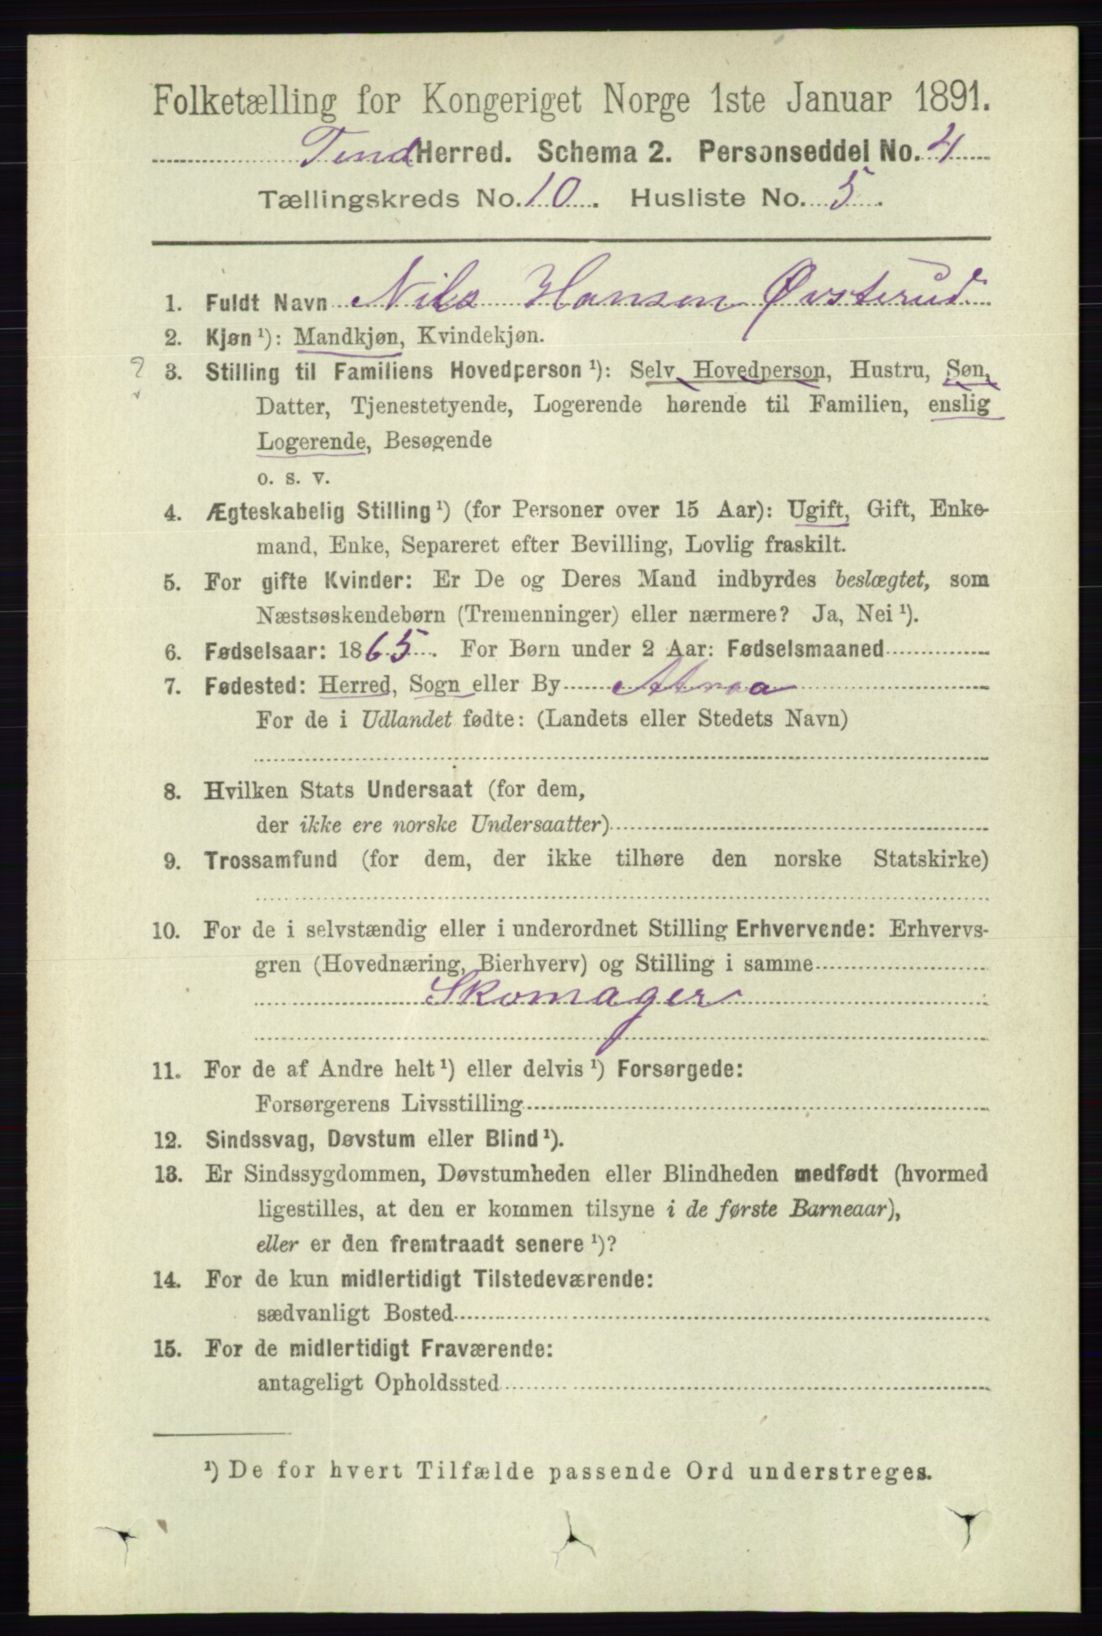 Folketælling for Kongeriget Norge 1ste Januar 1891.
Tind Herred. Schema 2. Personseddel No. 4
Tællingskreds No. 10. Husliste No. 5.
1. Fuldt Navn Nils Hansen Øvsterud
2. Kjøn ¹): Mandkjøn, Kvindekjøn.
? 3. Stilling til Familiens Hovedperson ¹): Selv Hovedperson, Hustru, Søn,
Datter, Tjenestetyende, Logerende hørende til Familien, enslig
Logerende, Besøgende
o. s. v.
4. Ægteskabelig Stilling ¹) (for Personer over 15 Aar): Ugift, Gift, Enke-
mand, Enke, Separeret efter Bevilling, Lovlig fraskilt.
5. For gifte Kvinder: Er De og Deres Mand indbyrdes beslægtet, som
Næstsøskendebørn (Tremenninger) eller nærmere? Ja, Nei ¹).
6. Fødselsaar: 1865. For Børn under 2 Aar: Fødselsmaaned
7. Fødested: Herred, Sogn eller By Atraa
For de i Udlandet fødte: (Landets eller Stedets Navn)
8. Hvilken Stats Undersaat (for dem,
der ikke ere norske Undersaatter)
9. Trossamfund (for dem, der ikke tilhøre den norske Statskirke)
10. For de i selvstændig eller i underordnet Stilling Erhvervende: Erhvervs-
gren (Hovednæring, Bierhverv) og Stilling i samme
Skomager
11. For de af Andre helt ¹) eller delvis ¹) Forsørgede:
Forsørgerens Livsstilling
12. Sindssvag, Døvstum eller Blind ¹).
13. Er Sindssygdommen, Døvstumheden eller Blindheden medfødt (hvormed
ligestilles, at den er kommen tilsyne i de første Barneaar),
eller er den fremtraadt senere ¹)?
14. For de kun midlertidigt Tilstedeværende:
sædvanligt Bosted
15. For de midlertidigt Fraværende:
antageligt Opholdssted
¹) De for hvert Tilfælde passende Ord understreges.